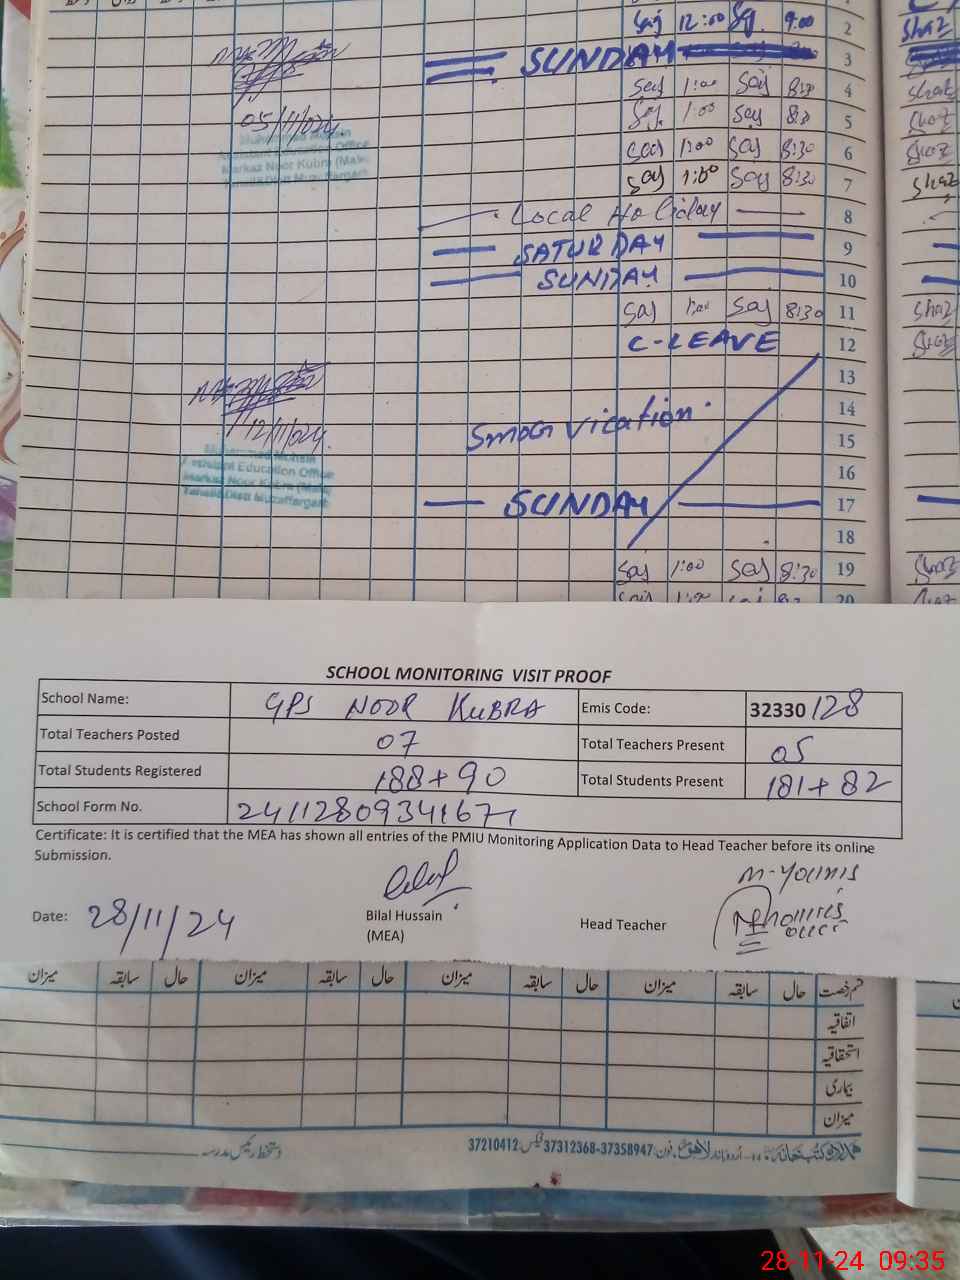 Saj 12:00 Saj 9:00 2
SUNDAY 3
Saj 1:00 Saj 8:30 4 Shaz
Saj 1:00 Saj 8:30 5 Shaz
05/11/024
Saj 1:00 Saj 8:30 6 Shaz
Saj 1:00 Saj 8:30 7 Shaz
Muhammad Mohsin
Assistant Education Office
Markaz Noor Kubra (Male)
Tehsil & Distt Muzaffargarh
Local Holiday 8
SATURDAY 9
SUNDAY 10
Saj 1:00 Saj 8:30 11 Shaz
C-LEAVE 12 Shaz
13
Smog Vication 14
12/11/024
15
Muhammad Mohsin
Assistant Education Office
Markaz Noor Kubra (Male)
Tehsil & Distt Muzaffargarh
16
SUNDAY 17
18
Saj 1:00 Saj 8:30 19 Shaz
20
SCHOOL MONITORING VISIT PROOF
School Name: GPS NOOR KUBRA Emis Code: 32330128
Total Teachers Posted 07 Total Teachers Present 05
Total Students Registered 188+90 Total Students Present 181+82
School Form No. 24112809341671
Certificate: It is certified that the MEA has shown all entries of the PMIU Monitoring Application Data to Head Teacher before its online
Submission.
M-Younis
Date: 28/11/24 Bilal Hussain Head Teacher
(MEA)
میزان سابقہ حال میزان سابقہ حال میزان سابقہ حال میزان سابقہ حال قسم رخصت
اتفاقیہ
استحقاقیہ
بیماری
میزان
دستخط رئیس مدرسہ
37210412 فیکس 37312368-37358947 فون: لاہور اردو بازار
28-11-24 09:35